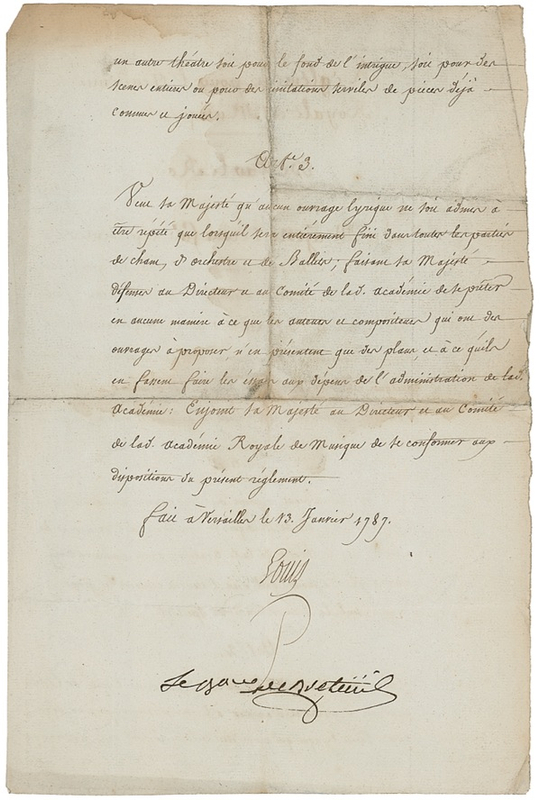 un autre théatre soit pour le fond de l'intrigue, soit pour des
scenes entieres ou pour des imitations serviles de pieces déjà
connues et jouées.
Arte. 3.
Veut sa Majesté qu'aucun ouvrage lyrique ne soit admis à
être répété que lorsquil sera entiérement fini dans toutes les parties
de chant, d'orchestre et de Ballets; faisant sa Majesté
défenses au Directeur et au Comité de lad. académie de se prêter
en aucune maniere à ce que les auteurs et compositeurs qui ont des
ouvrages à proposer n'en présentent que des plans, et à ce quils
en fassent faire les éssais aux dépens de l'administration de lad.
Académie: Enjoint sa Majesté au Directeur et au Comité
de lad. académie Royale de Musique de se conformer aux
dispositions du présent réglement.
fait à Versailles le 13. Janvier 1787.
Louis
Le Baron de Breteüil